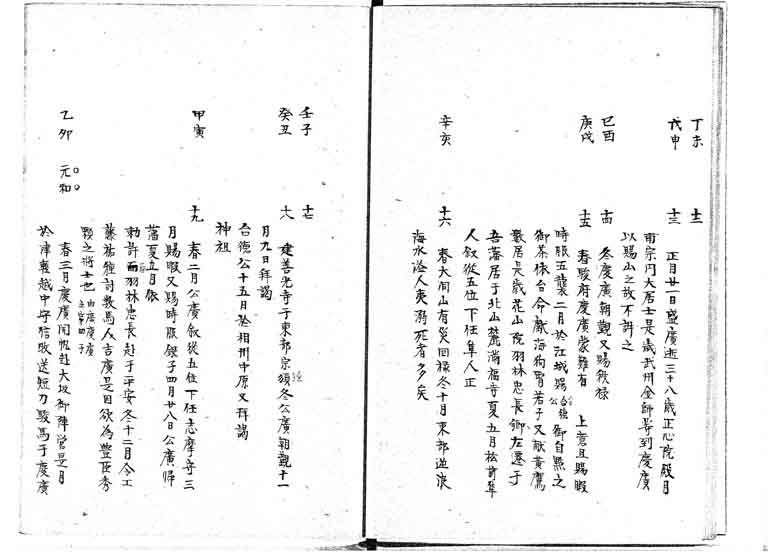 丁未 十二
戊申 十三 正月廿一日盛廣逝三十八歳正心院殿月
甫宗円大居士是歳武州金師等到慶廣
以賜山之故不許之
己酉 十四 冬慶廣朝覲又賜秩禄
庚戌 十五 春駿府慶廣蒙難有 上意且賜暇
時服五襲二月於江城賜 台徳公 御自點之
御茶依台命献海狗腎若干又献黄鷹
數居是歳花山院羽林忠長卿左遷于
吾藩居于北山麓満福寺夏五月松前隼
人叙從五位下任隼人正
辛亥 十六 春大間山有災回禄冬十月東部逆浪
海水溢人夷溺死者多矣
壬子 十七
癸丑 十八 建善光寺于東部宗須冬公廣朝覲十一
月九日拜謁
台徳公十五月於相州中原又拜謁
神祖
甲寅 十九 春二月公廣叙從五位下任志摩守三
月賜暇又賜時服銀子四月廿八日公廣帰
藩夏五月依
勅許而羽林忠長赴于平安冬十二月令工
藤祐種討數馬人吉廣是因欲為豊臣秀
頼之将士也 由廣慶廣主家四子
乙卯 元和 春三月慶廣聞帆赴大坂御陣営是月
於津軽越中守信枚送短刀駿馬于慶廣